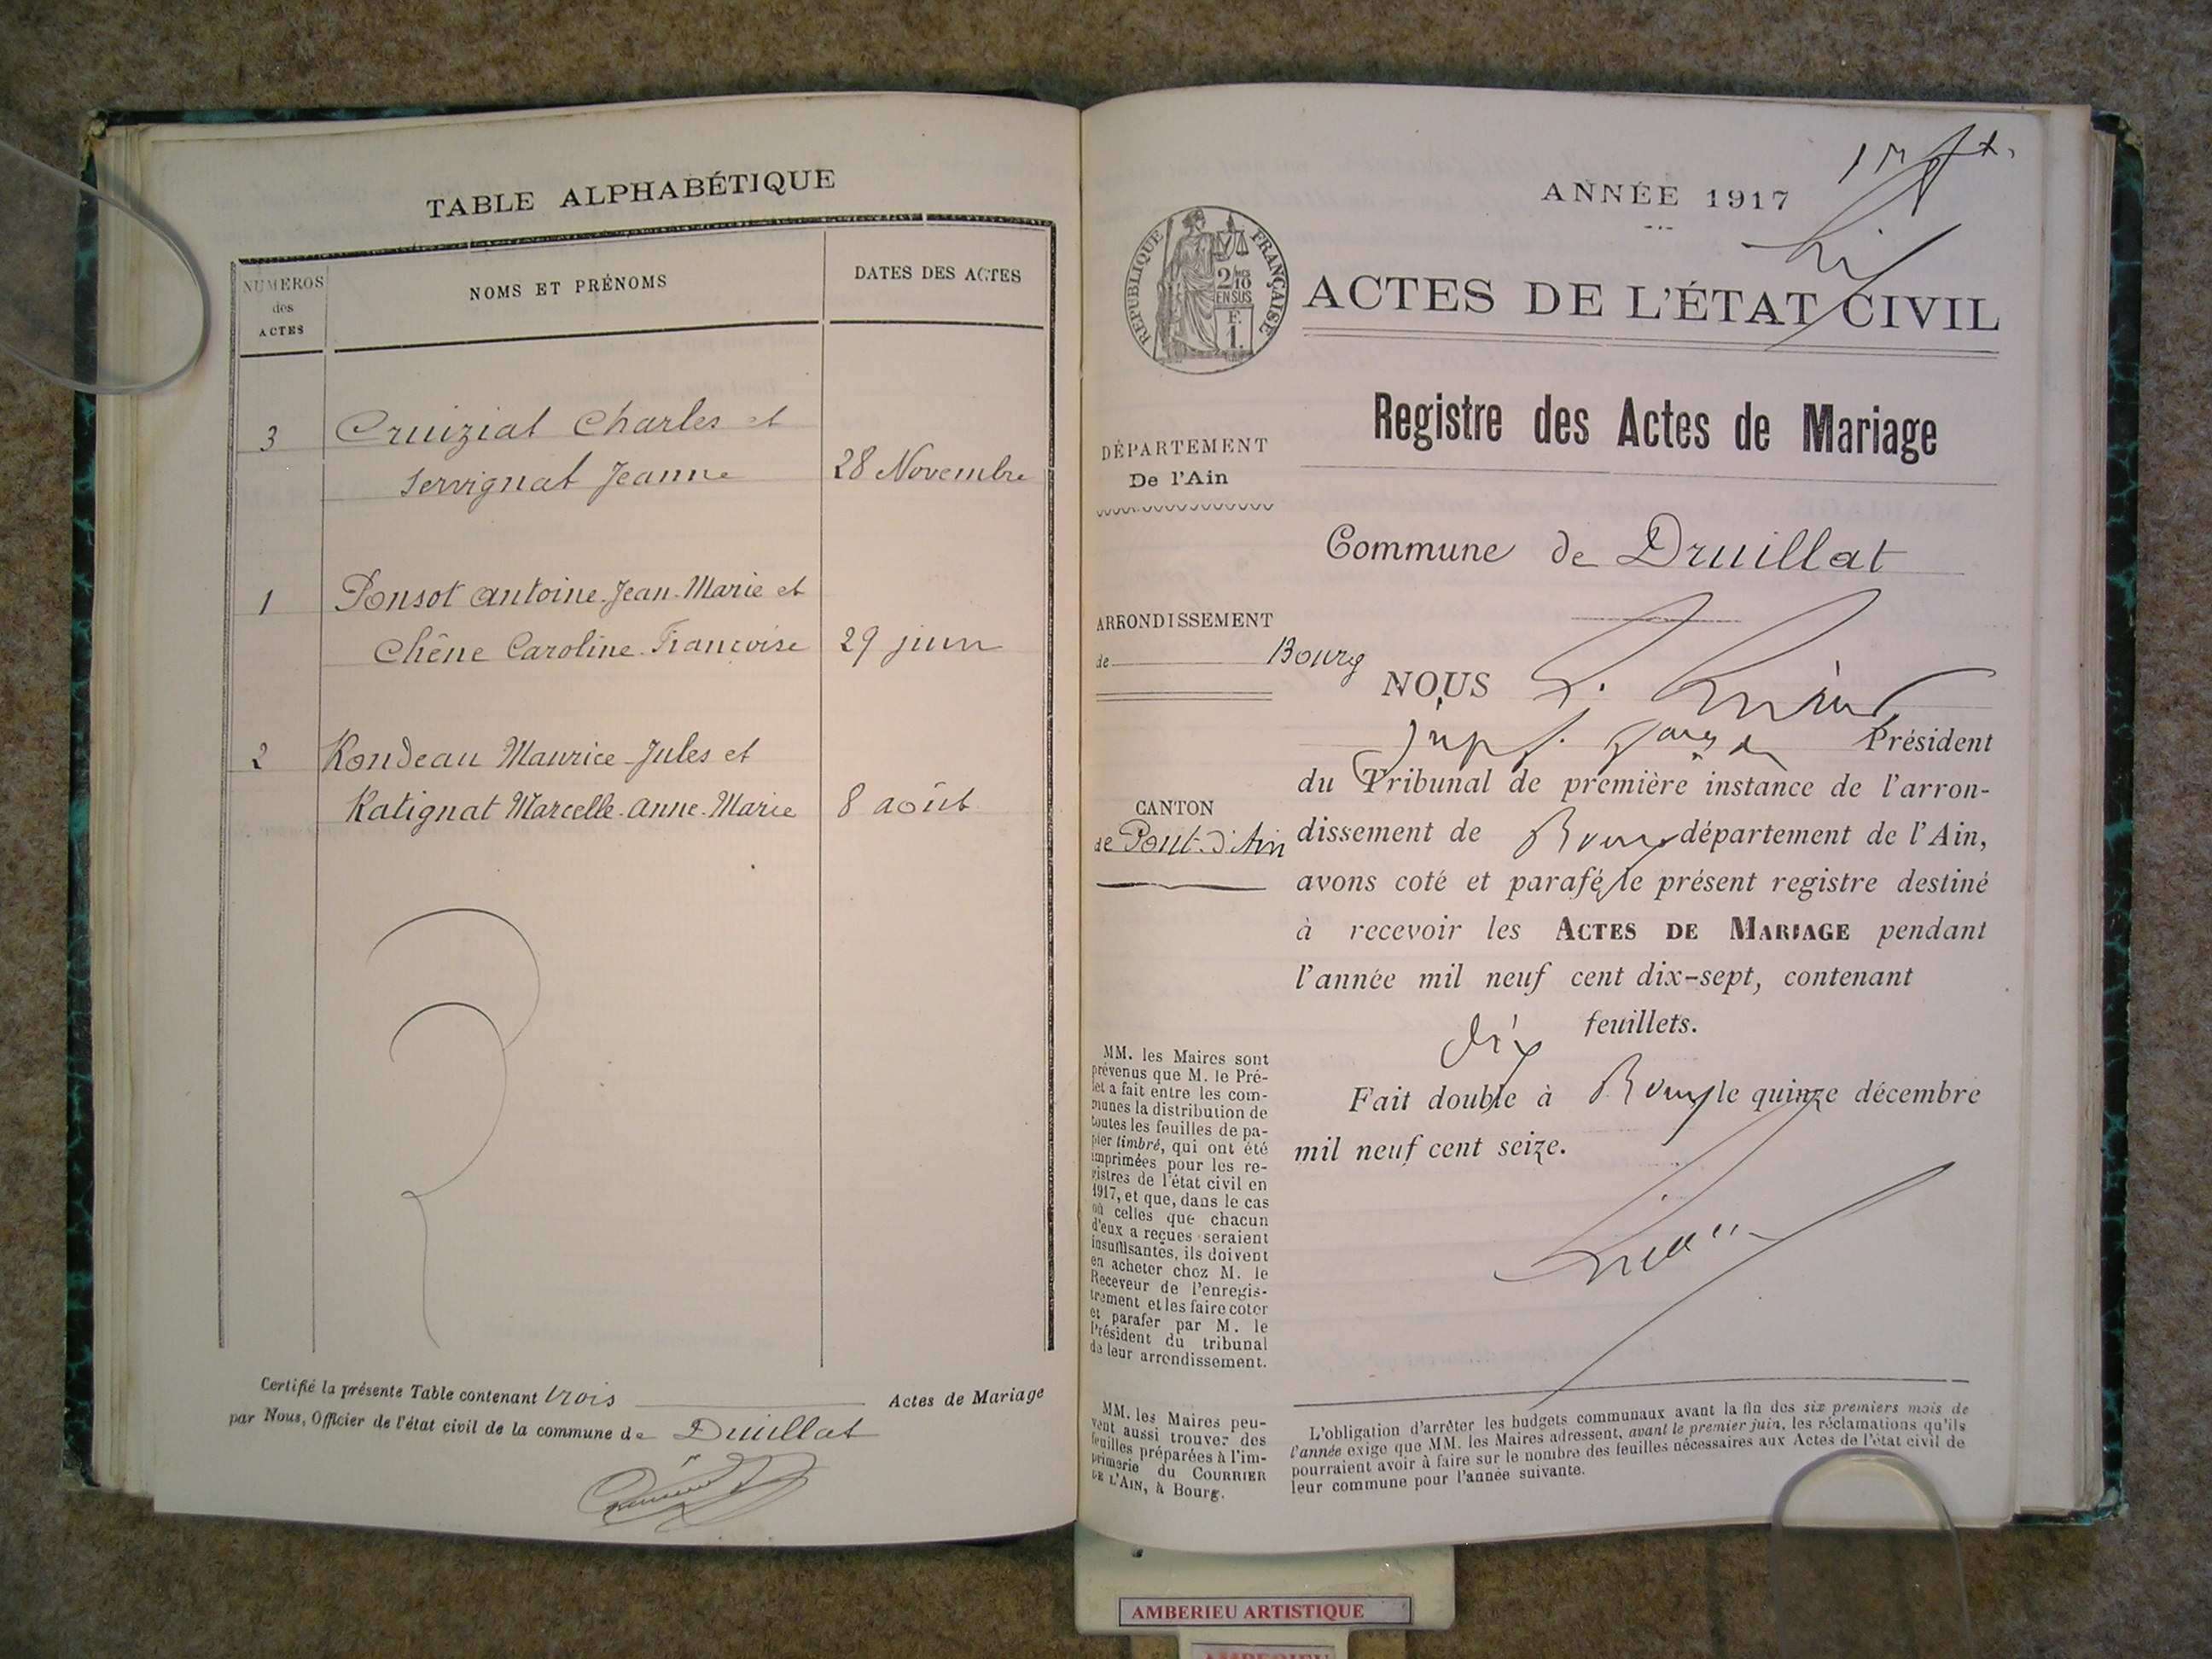 TABLE ALPHABÉTIQUE
NUMEROS
des
ACTES
NOMS ET PRÉNOMS
DATES DES ACTES
3 Cruiziat Charles et
Servignat Jeanne 28 Novembre
1 Ponsot Antoine-Jean-Marie et
Chêne Caroline-Françoise 29 juin
2 Rondeau Maurice-Jules et
Ratignat Marcelle-Anne-Marie 8 août
Certifié la présente Table contenant trois Actes de Mariage
par Nous, Officier de l'état civil de la commune de Druillat
1er ft.
ANNÉE 1917
RÉPUBLIQUE FRANÇAISE
2/10
EN SUS
F.
1.
ACTES DE L'ÉTAT CIVIL
Registre des Actes de Mariage
DÉPARTEMENT
De l'Ain
Commune de Druillat
ARRONDISSEMENT
de Bourg
CANTON
de Pont-d'Ain
NOUS
Président
du Tribunal de première instance de l'arron-
dissement de Bourg département de l'Ain,
avons coté et parafé le présent registre destiné
à recevoir les ACTES DE MARIAGE pendant
l'année mil neuf cent dix-sept, contenant
dix feuillets.
Fait double à Bourg le quinze décembre
mil neuf cent seize.
MM. les Maires sont
prévenus que M. le Pré-
fet a fait entre les com-
munes la distribution de
toutes les feuilles de pa-
pier timbré, qui ont été
imprimées pour les re-
gistres de l'état civil en
1917, et que, dans le cas
où celles que chacun
d'eux a reçues seraient
insuffisantes, ils doivent
en acheter chez M. le
Receveur de l'enregis-
trement et les faire coter
et parafer par M. le
Président du tribunal
de leur arrondissement.
MM. les Maires peu-
vent aussi trouver des
feuilles préparées à l'im-
primerie du COURRIER
DE L'AIN, à Bourg.
L'obligation d'arrêter les budgets communaux avant la fin des six premiers mois de
l'année exige que MM. les Maires adressent, avant le premier juin, les réclamations qu'ils
pourraient avoir à faire sur le nombre des feuilles nécessaires aux Actes de l'état civil de
leur commune pour l'année suivante.
AMBERIEU ARTISTIQUE
AMBERIEU